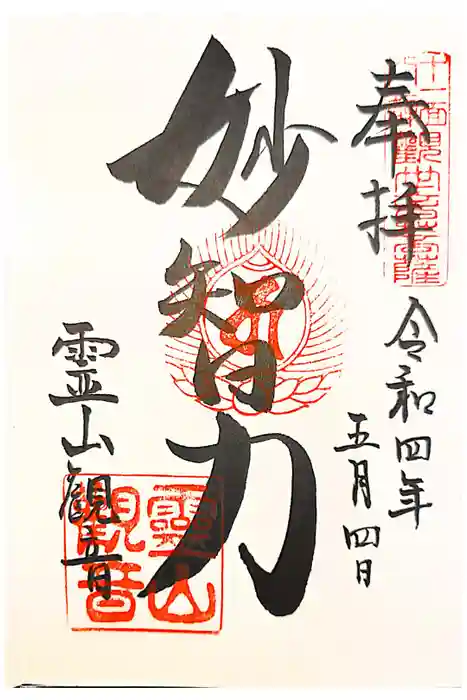 奉拝
令和四年
五月四日
妙智力
霊山観音
十一面觀世音霊窿
靈山
觀音